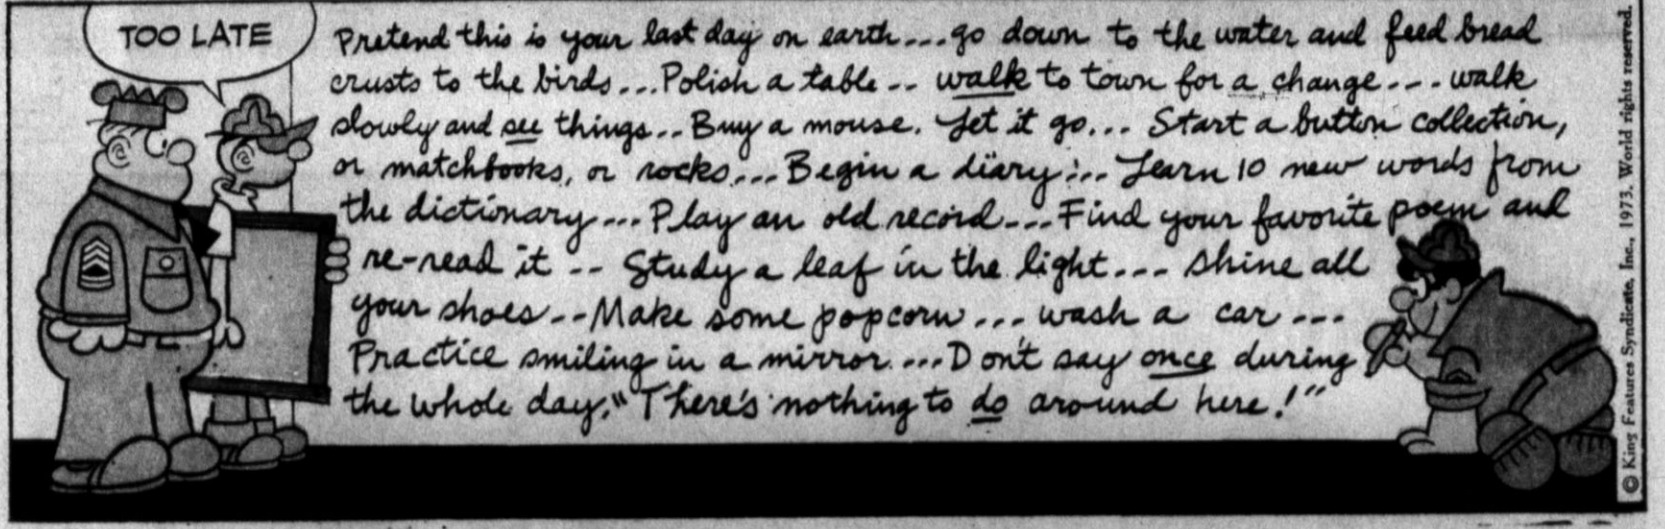 TOO LATE
Pretend this is your last day on earth...go down to the water and feed bread
crusts to the birds...Polish a table.. walk to town for a change... walk
slowly and see things.. Buy a mouse. Let it go... Start a button collection,
or matchbooks, or rocks... Begin a diary... Learn 10 new words from
the dictionary... Play an old record... Find your favorite poem and
re-read it .. Study a leaf in the light... Shine all
your shoes.. Make some popcorn... wash a car ...
Practice smiling in a mirror....Don't say once during
the whole day, "There's nothing to do around here!"
© King Features Syndicate, Inc., 1973. World rights reserved.